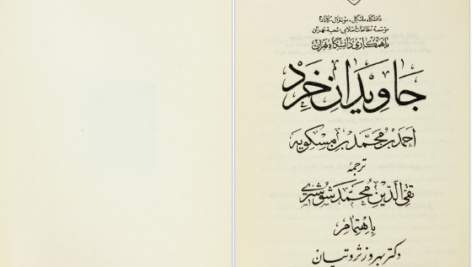 دانشگاه مک‌گیل، مونترال کانادا
مؤسسهٔ مطالعات اسلامی، شعبهٔ تهران
باهمکاری دانشگاه تهران
جاویدان خرد
احمد بن محمد بن مسکویه
ترجمهٔ
تقی الدین محمد شوشتری
باهتمام
دکتر بهروز ثروتیان